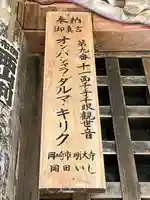 奉納
御真言
第九番 十一面千手千眼観世音
オンバサラダルマキリク
岡崎市明大寺
岡田いし